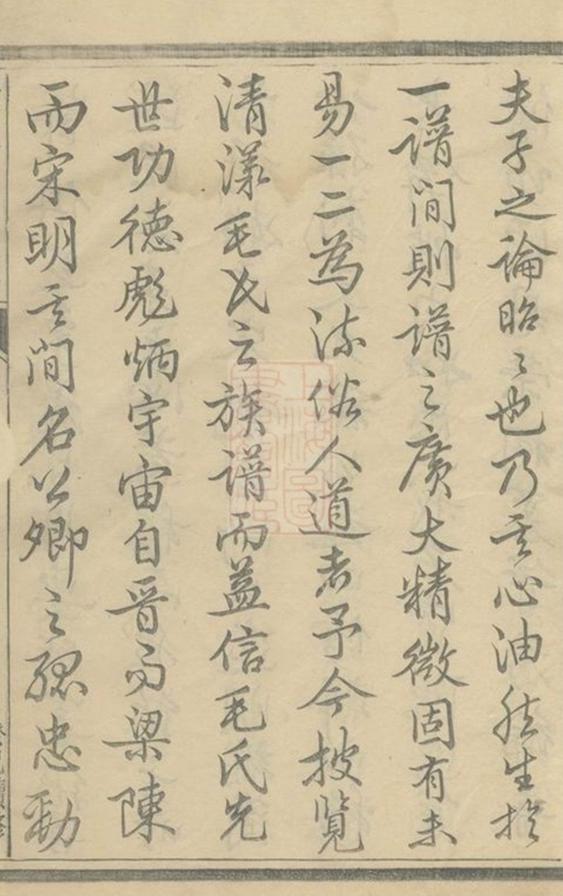 夫子之論昭々也乃其心油然生於
一譜間則譜之廣大精微固有未
易一二為流俗人道者予今披覽
清漾毛氏之族譜而益信毛氏先
世功德彪炳宇宙自晉而梁陳
而宋明其間名公卿之孤忠勁